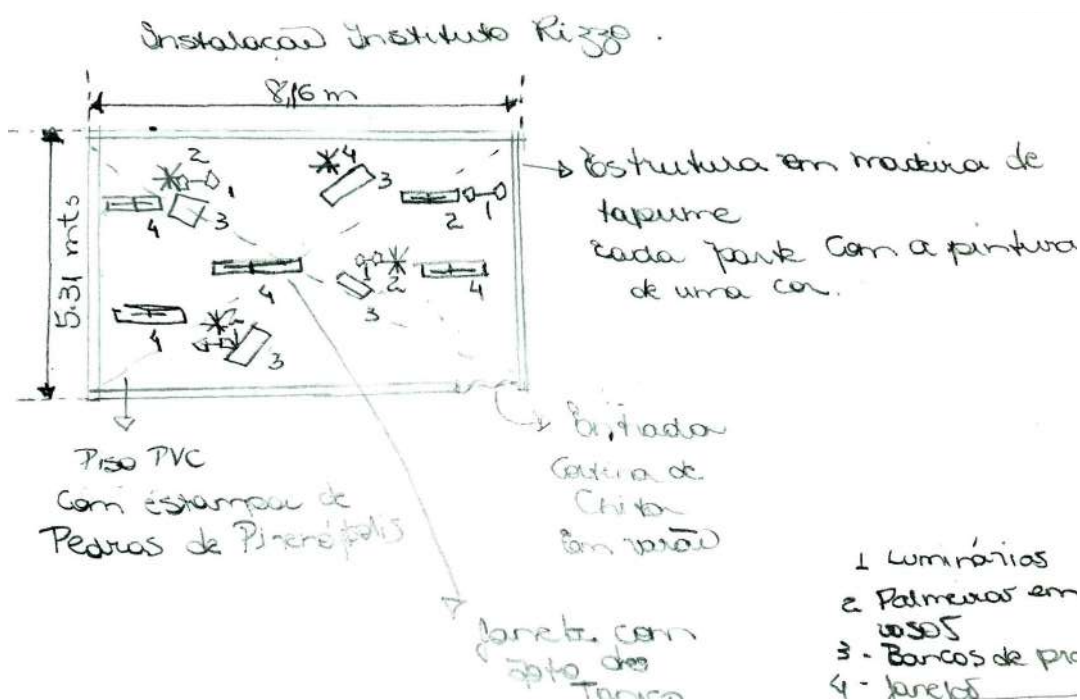 Instalação Instituto Rizzo.
8,16 m
5.31 mts
2
1
4
3
4
3
2
1
4
1
2
3
4
4
2
1
3
Estrutura em madeira de
tapume
cada parte com a pintura
de uma cor.
Piso PVC
com estampa de
Pedras de Pirenópolis
Entrada
Cortina de
Chita
em varão
Janela com
foto
1 Luminárias
2 Palmeiras em
vasos
3 - Bancos de
4 - Janelas